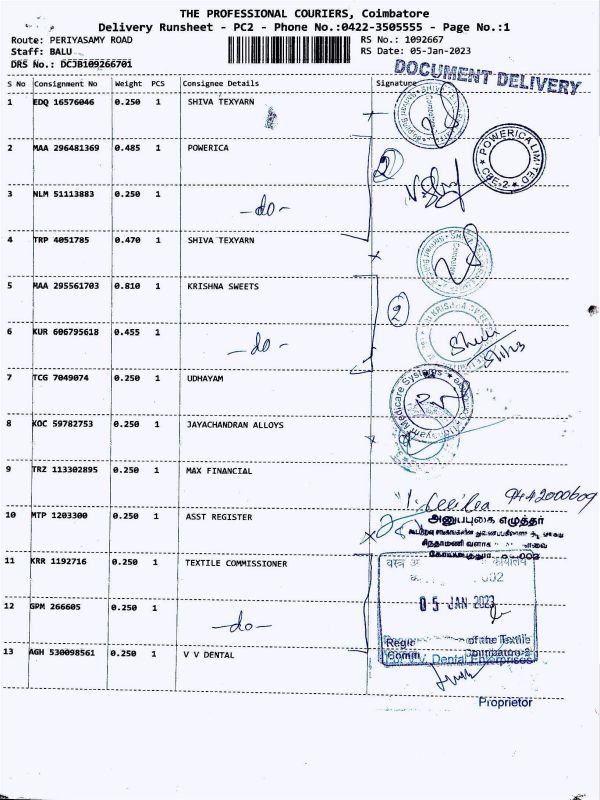 THE PROFESSIONAL COURIERS, Coimbatore
Delivery Runsheet - PC2 - Phone No.:0422-3505555 - Page No.:1
Route: PERIYASAMY ROAD
Staff: BALU
DRS No.: DCJB109266701
RS No.: 1092667
RS Date: 05-Jan-2023
DOCUMENT DELIVERY
S No Consignment No Weight PCS Consignee Details Signature
1 EDQ 16576046 0.250 1 SHIVA TEXYARN
2 MAA 296481369 0.485 1 POWERICA
POWERICA LIMITED
CBE-2
2
3 NLM 51113883 0.250 1 -do-
4 TRP 4051785 0.470 1 SHIVA TEXYARN
5 MAA 295561703 0.810 1 KRISHNA SWEETS
2
6 KUR 606795618 0.455 1 -do-
5/1/23
7 TCG 7049074 0.250 1 UDHAYAM
Udhayam Medicare Systems
8 KOC 59782753 0.250 1 JAYACHANDRAN ALLOYS
9 TRZ 113302895 0.250 1 MAX FINANCIAL
9442000609
10 MTP 1203300 0.250 1 ASST REGISTER
அனுப்புகை எழுத்தர்
11 KRR 1192716 1 TEXTILE COMMISSIONER
12 GPM 266605 0.250 1 -do-
05 JAN 2023
of the Textile
Coimbatore-2
13 AGH 530098561 0.250 1 V V DENTAL
For V.V. Dental Enterprises
Proprietor